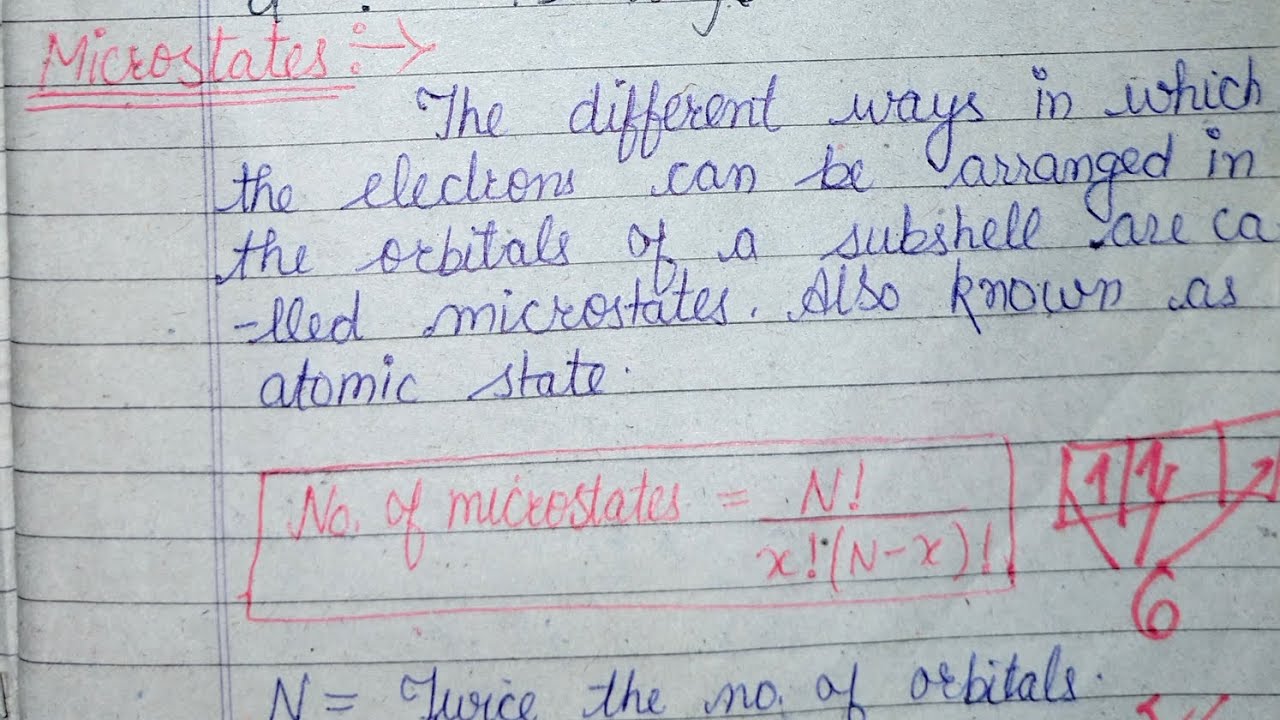 Microstates:→
The different ways in which
the electrons can be arranged in
the orbitals of a subshell are ca
-lled microstates. Also known as
atomic state.
No. of microstates = N! / x!(N-x)!
6
N = Twice the no. of orbitals.